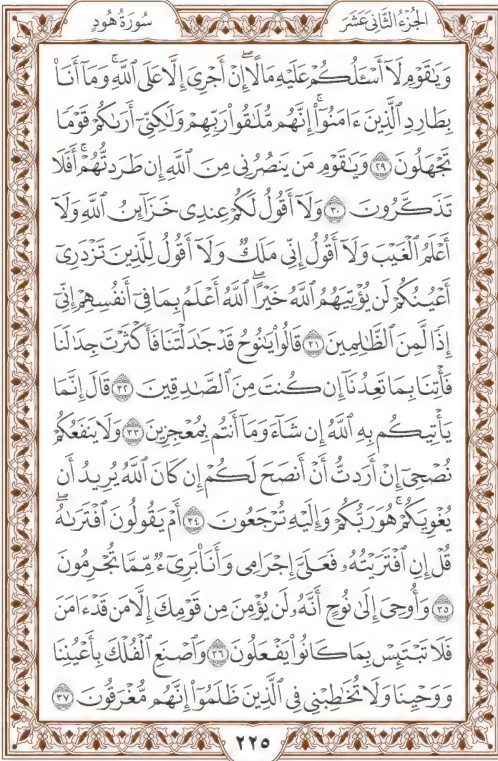 الجُزْءُ الثَّانِي عَشَرَ
سُورَةُ هُودٍ
وَيَٰقَوْمِ لَآ أَسْـَٔلُكُمْ عَلَيْهِ مَالًا ۖ إِنْ أَجْرِىَ إِلَّا عَلَى ٱللَّهِ ۚ وَمَآ أَنَا۠
بِطَارِدِ ٱلَّذِينَ ءَامَنُوٓا۟ ۚ إِنَّهُم مُّلَٰقُوا۟ رَبِّهِمْ وَلَٰكِنِّىٓ أَرَىٰكُمْ قَوْمًا
تَجْهَلُونَ ٢٩ وَيَٰقَوْمِ مَن يَنصُرُنِى مِنَ ٱللَّهِ إِن طَرَدتُّهُمْ ۚ أَفَلَا
تَذَكَّرُونَ ٣٠ وَلَآ أَقُولُ لَكُمْ عِندِى خَزَآئِنُ ٱللَّهِ وَلَآ
أَعْلَمُ ٱلْغَيْبَ وَلَآ أَقُولُ إِنِّى مَلَكٌ وَلَآ أَقُولُ لِلَّذِينَ تَزْدَرِىٓ
أَعْيُنُكُمْ لَن يُؤْتِيَهُمُ ٱللَّهُ خَيْرًا ۖ ٱللَّهُ أَعْلَمُ بِمَا فِىٓ أَنفُسِهِمْ ۖ إِنِّىٓ
إِذًا لَّمِنَ ٱلظَّٰلِمِينَ ٣١ قَالُوا۟ يَٰنُوحُ قَدْ جَٰدَلْتَنَا فَأَكْثَرْتَ جِدَٰلَنَا
فَأْتِنَا بِمَا تَعِدُنَآ إِن كُنتَ مِنَ ٱلصَّٰدِقِينَ ٣٢ قَالَ إِنَّمَا
يَأْتِيكُم بِهِ ٱللَّهُ إِن شَآءَ وَمَآ أَنتُم بِمُعْجِزِينَ ٣٣ وَلَا يَنفَعُكُمْ
نُصْحِىٓ إِنْ أَرَدتُّ أَنْ أَنصَحَ لَكُمْ إِن كَانَ ٱللَّهُ يُرِيدُ أَن
يُغْوِيَكُمْ ۚ هُوَ رَبُّكُمْ وَإِلَيْهِ تُرْجَعُونَ ٣٤ أَمْ يَقُولُونَ ٱفْتَرَىٰهُ ۖ
قُلْ إِنِ ٱفْتَرَيْتُهُۥ فَعَلَىَّ إِجْرَامِى وَأَنَا۠ بَرِىٓءٌ مِّمَّا تُجْرِمُونَ
٣٥ وَأُوحِىَ إِلَىٰ نُوحٍ أَنَّهُۥ لَن يُؤْمِنَ مِن قَوْمِكَ إِلَّا مَن قَدْ ءَامَنَ
فَلَا تَبْتَئِسْ بِمَا كَانُوا۟ يَفْعَلُونَ ٣٦ وَٱصْنَعِ ٱلْفُلْكَ بِأَعْيُنِنَا
وَوَحْيِنَا وَلَا تُخَٰطِبْنِى فِى ٱلَّذِينَ ظَلَمُوٓا۟ ۚ إِنَّهُم مُّغْرَقُونَ ٣٧
٢٢٥